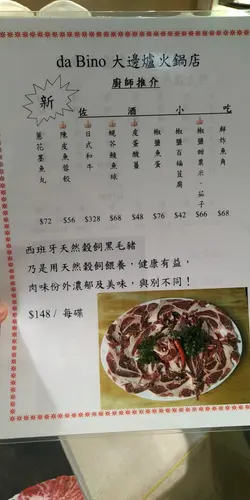 da Bino 大邊爐火鍋店
廚師推介
新
佐酒小吃
蔥花墨魚丸
陳皮魚蓉餃
日式和牛
蜆芥鯪魚球
皮蛋酸薑
椒鹽魚蛋
椒鹽百福豆腐
椒鹽甜粟米·茄子
鮮炸魚角
$72 $56 $328 $68 $48 $76 $42 $66 $68
西班牙天然穀飼黑毛豬
乃是用天然穀飼餵養，健康有益，
肉味份外濃郁及美味，與別不同！
$148 / 每碟